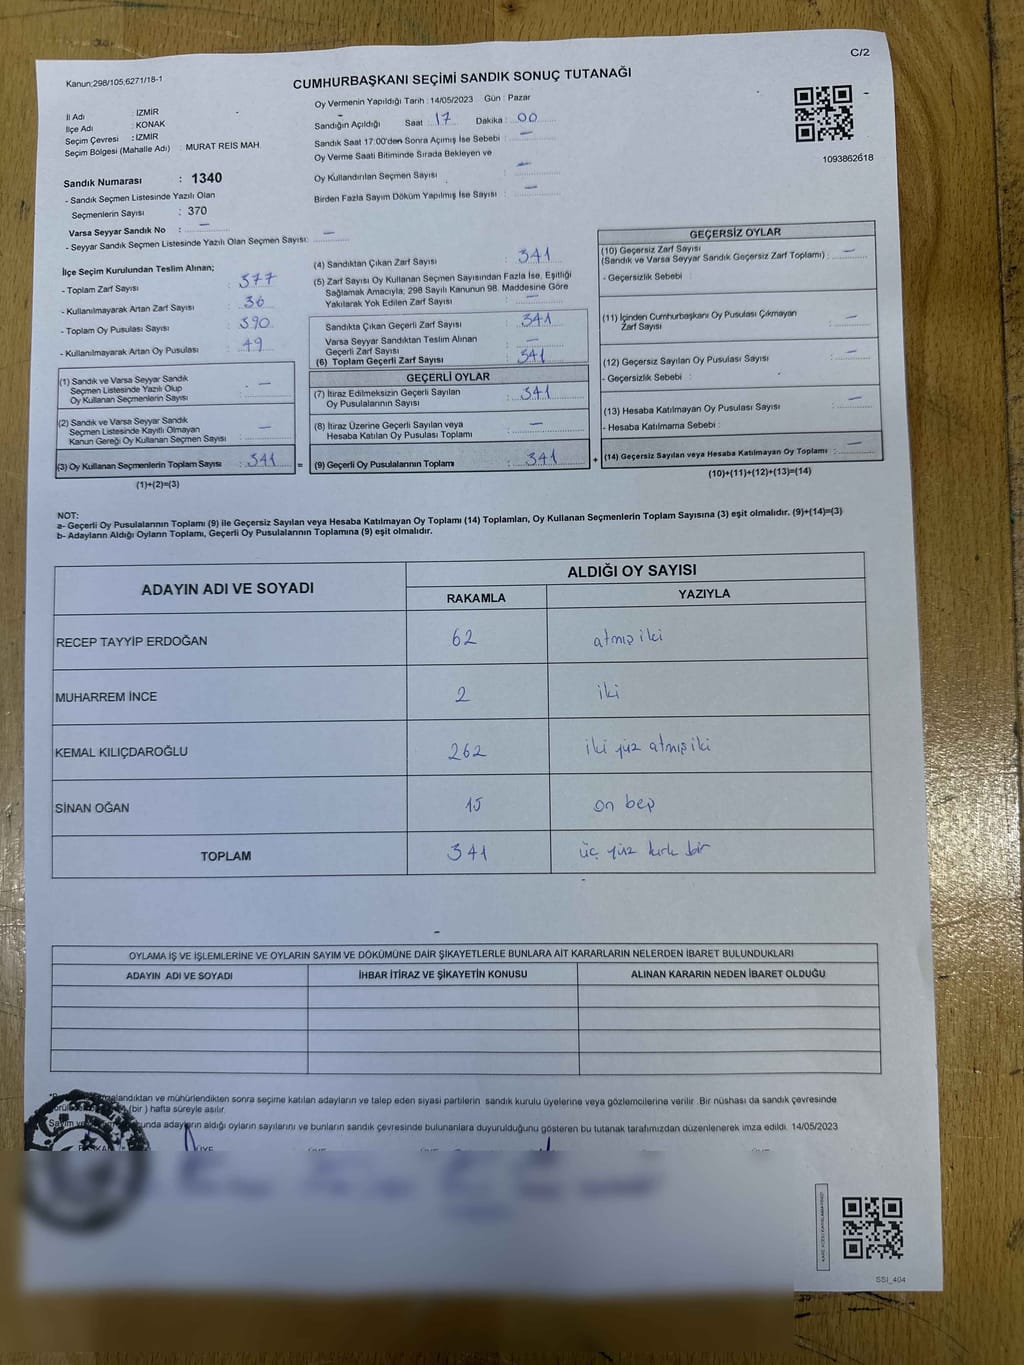 C/2
Kanun:298/105;6271/18-1
CUMHURBAŞKANI SEÇİMİ SANDIK SONUÇ TUTANAĞI
İl Adı : İZMİR
İlçe Adı : KONAK
Seçim Çevresi : İZMİR
Seçim Bölgesi (Mahalle Adı) : MURAT REİS MAH.
Oy Vermenin Yapıldığı Tarih : 14/05/2023 Gün : Pazar
Sandığın Açıldığı Saat : 17 Dakika : 00
Sandık Saat 17:00'den Sonra Açımış İse Sebebi : —
Oy Verme Saati Bitiminde Sırada Bekleyen ve
Oy Kullandırılan Seçmen Sayısı : —
Birden Fazla Sayım Döküm Yapılmış İse Sayısı : —
1093862618
Sandık Numarası : 1340
- Sandık Seçmen Listesinde Yazılı Olan
Seçmenlerin Sayısı : 370
Varsa Seyyar Sandık No : —
- Seyyar Sandık Seçmen Listesinde Yazılı Olan Seçmen Sayısı: —
İlçe Seçim Kurulundan Teslim Alınan;
- Toplam Zarf Sayısı : 377
- Kullanılmayarak Artan Zarf Sayısı : 36
- Toplam Oy Pusulası Sayısı : 390
- Kullanılmayarak Artan Oy Pusulası : 49
(1) Sandık ve Varsa Seyyar Sandık
Seçmen Listesinde Yazılı Olup
Oy Kullanan Seçmenlerin Sayısı : —
(2) Sandık ve Varsa Seyyar Sandık
Seçmen Listesinde Kayıtlı Olmayan
Kanun Gereği Oy Kullanan Seçmen Sayısı : —
(3) Oy Kullanan Seçmenlerin Toplam Sayısı : 341 =
(1)+(2)=(3)
(4) Sandıktan Çıkan Zarf Sayısı : 341
(5) Zarf Sayısı Oy Kullanan Seçmen Sayısından Fazla İse, Eşitliği
Sağlamak Amacıyla; 298 Sayılı Kanunun 98. Maddesine Göre
Yakılarak Yok Edilen Zarf Sayısı : —
Sandıkta Çıkan Geçerli Zarf Sayısı : 341
Varsa Seyyar Sandıktan Teslim Alınan
Geçerli Zarf Sayısı : —
(6) Toplam Geçerli Zarf Sayısı : 341
GEÇERLİ OYLAR
(7) İtiraz Edilmeksizin Geçerli Sayılan
Oy Pusulalarının Sayısı : 341
(8) İtiraz Üzerine Geçerli Sayılan veya
Hesaba Katılan Oy Pusulası Toplamı : —
(9) Geçerli Oy Pusulalarının Toplamı : 341 +
GEÇERSİZ OYLAR
(10) Geçersiz Zarf Sayısı
(Sandık ve Varsa Seyyar Sandık Geçersiz Zarf Toplamı) : —
- Geçersizlik Sebebi :
(11) İçinden Cumhurbaşkanı Oy Pusulası Çıkmayan
Zarf Sayısı : —
(12) Geçersiz Sayılan Oy Pusulası Sayısı : —
- Geçersizlik Sebebi :
(13) Hesaba Katılmayan Oy Pusulası Sayısı : —
- Hesaba Katılmama Sebebi :
(14) Geçersiz Sayılan veya Hesaba Katılmayan Oy Toplamı : —
(10)+(11)+(12)+(13)=(14)
NOT:
a- Geçerli Oy Pusulalarının Toplamı (9) ile Geçersiz Sayılan veya Hesaba Katılmayan Oy Toplamı (14) Toplamları, Oy Kullanan Seçmenlerin Toplam Sayısına (3) eşit olmalıdır. (9)+(14)=(3)
b- Adayların Aldığı Oyların Toplamı, Geçerli Oy Pusulalarının Toplamına (9) eşit olmalıdır.
ADAYIN ADI VE SOYADI ALDIĞI OY SAYISI
RAKAMLA YAZIYLA
RECEP TAYYİP ERDOĞAN 62 atmış iki
MUHARREM İNCE 2 iki
KEMAL KILIÇDAROĞLU 262 iki yüz atmış iki
SİNAN OĞAN 15 on beş
TOPLAM 341 üç yüz kırk bir
OYLAMA İŞ VE İŞLEMLERİNE VE OYLARIN SAYIM VE DÖKÜMÜNE DAİR ŞİKAYETLERLE BUNLARA AİT KARARLARIN NELERDEN İBARET BULUNDUKLARI
ADAYIN ADI VE SOYADI İHBAR İTİRAZ VE ŞİKAYETİN KONUSU ALINAN KARARIN NEDEN İBARET OLDUĞU
alandıktan ve mühürlendikten sonra seçime katılan adayların ve talep eden siyasi partilerin sandık kurulu üyelerine veya gözlemcilerine verilir .Bir nüshası da sandık çevresinde
(bir ) hafta süreyle asılır.
unda adayların aldığı oyların sayılarını ve bunların sandık çevresinde bulunanlara duyurulduğunu gösteren bu tutanak tarafımızdan düzenlenerek imza edildi. 14/05/2023
SSI_404